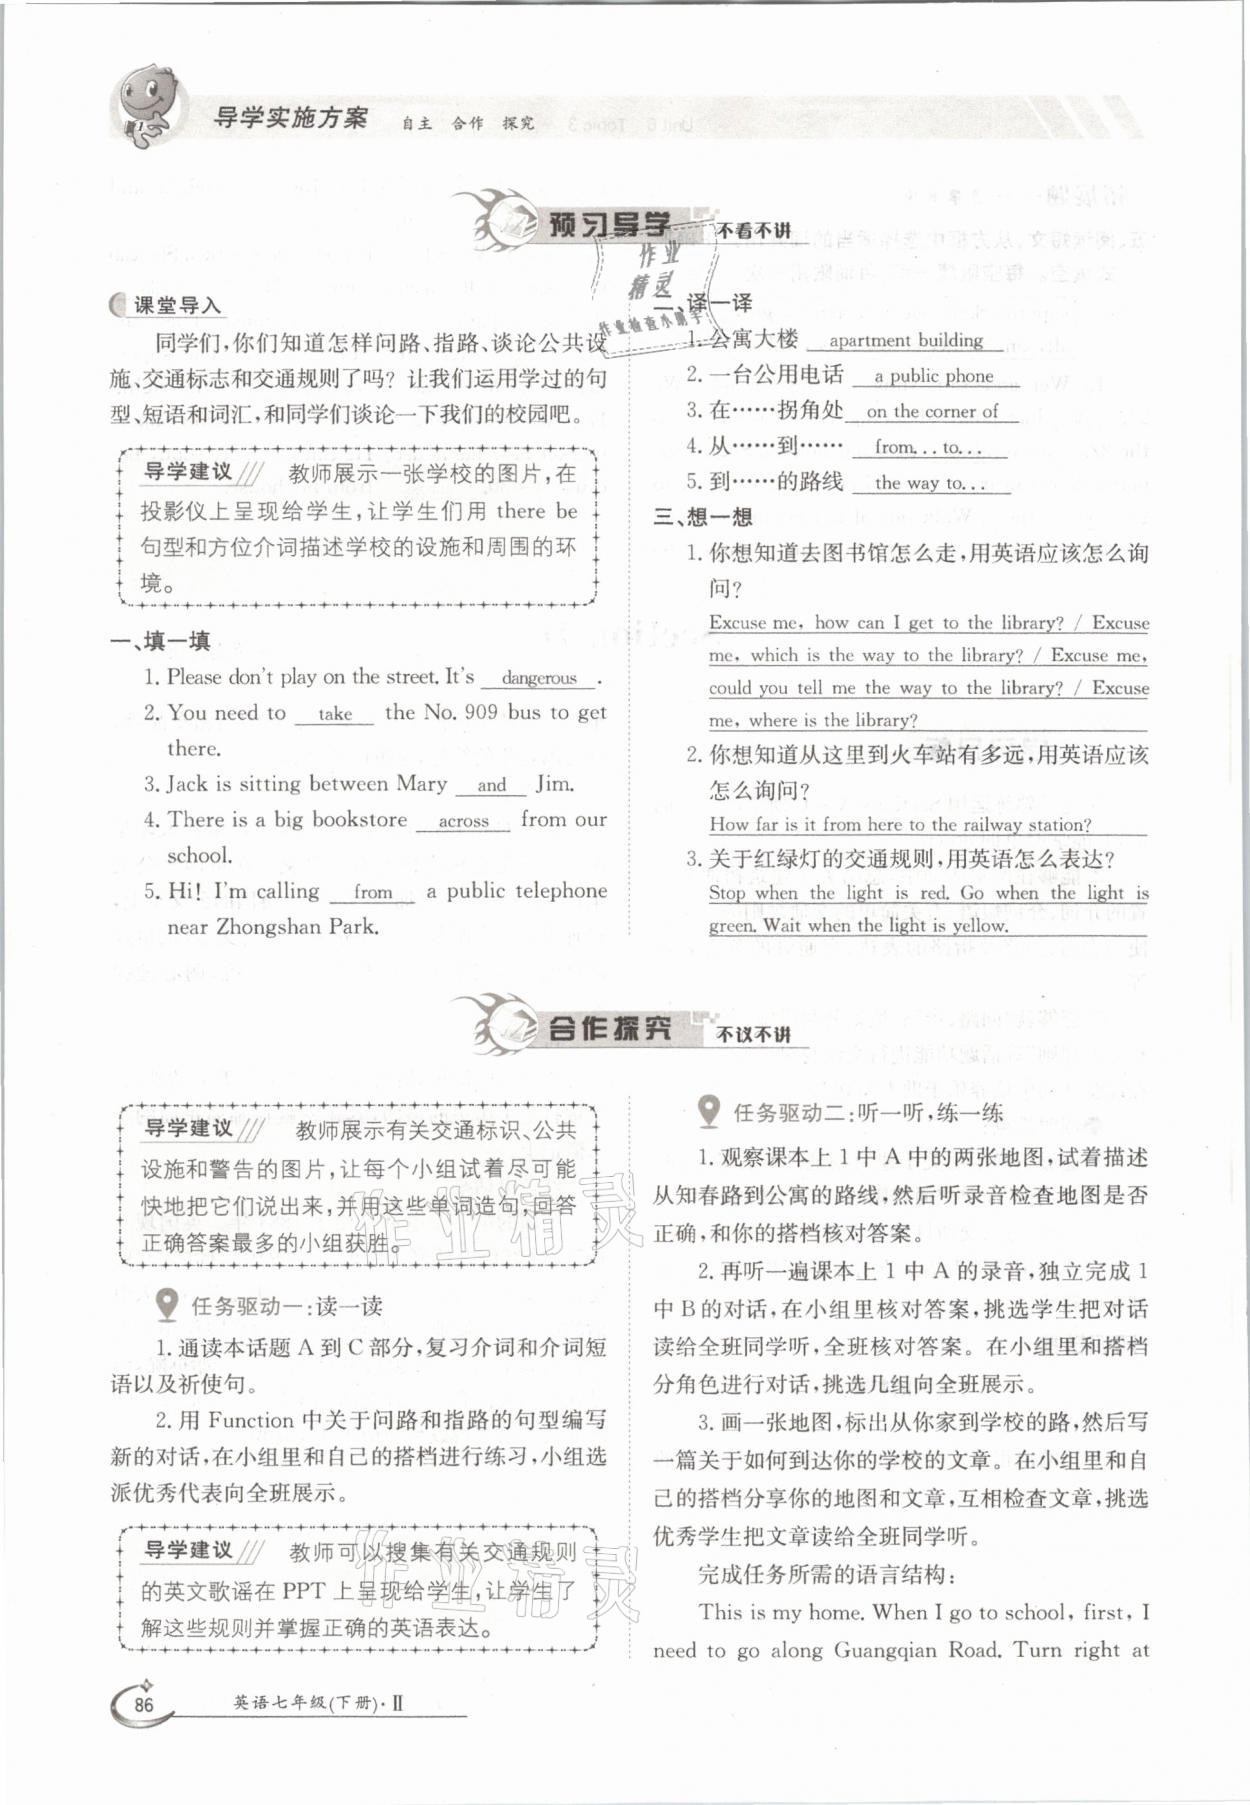 导学实施方案 自主 合作 探究
预习导学 不看不讲
课堂导入
同学们,你们知道怎样问路、指路、谈论公共设
施、交通标志和交通规则了吗? 让我们运用学过的句
型、短语和词汇,和同学们谈论一下我们的校园吧。
导学建议 教师展示一张学校的图片,在
投影仪上呈现给学生,让学生们用 there be
句型和方位介词描述学校的设施和周围的环
境。
一、填一填
1. Please don't play on the street. It's dangerous .
2. You need to take the No. 909 bus to get
there.
3. Jack is sitting between Mary and Jim.
4. There is a big bookstore across from our
school.
5. Hi! I'm calling from a public telephone
near Zhongshan Park.
二、译一译
1. 公寓大楼 apartment building
2. 一台公用电话 a public phone
3. 在……拐角处 on the corner of
4. 从……到…… from...to...
5. 到……的路线 the way to...
三、想一想
1. 你想知道去图书馆怎么走,用英语应该怎么询
问?
Excuse me, how can I get to the library? / Excuse
me, which is the way to the library? / Excuse me,
could you tell me the way to the library? / Excuse
me, where is the library?
2. 你想知道从这里到火车站有多远,用英语应该
怎么询问?
How far is it from here to the railway station?
3. 关于红绿灯的交通规则,用英语怎么表达?
Stop when the light is red. Go when the light is
green. Wait when the light is yellow.
作业
精灵
作业检查小助手
合作探究 不议不讲
导学建议 教师展示有关交通标识、公共
设施和警告的图片,让每个小组试着尽可能
快地把它们说出来,并用这些单词造句,回答
正确答案最多的小组获胜。
任务驱动一:读一读
1. 通读本话题 A 到 C 部分,复习介词和介词短
语以及祈使句。
2. 用 Function 中关于问路和指路的句型编写
新的对话,在小组里和自己的搭档进行练习,小组选
派优秀代表向全班展示。
导学建议 教师可以搜集有关交通规则
的英文歌谣在 PPT 上呈现给学生,让学生了
解这些规则并掌握正确的英语表达。
任务驱动二:听一听,练一练
1. 观察课本上 1 中 A 中的两张地图,试着描述
从知春路到公寓的路线,然后听录音检查地图是否
正确,和你的搭档核对答案。
2. 再听一遍课本上 1 中 A 的录音,独立完成 1
中 B 的对话,在小组里核对答案,挑选学生把对话
读给全班同学听,全班核对答案。在小组里和搭档
分角色进行对话,挑选几组向全班展示。
3. 画一张地图,标出从你家到学校的路,然后写
一篇关于如何到达你的学校的文章。在小组里和自
己的搭档分享你的地图和文章,互相检查文章,挑选
优秀学生把文章读给全班同学听。
完成任务所需的语言结构:
This is my home. When I go to school, first, I
need to go along Guangqian Road. Turn right at
作业精灵
作业精灵
86 英语七年级(下册)·Ⅱ